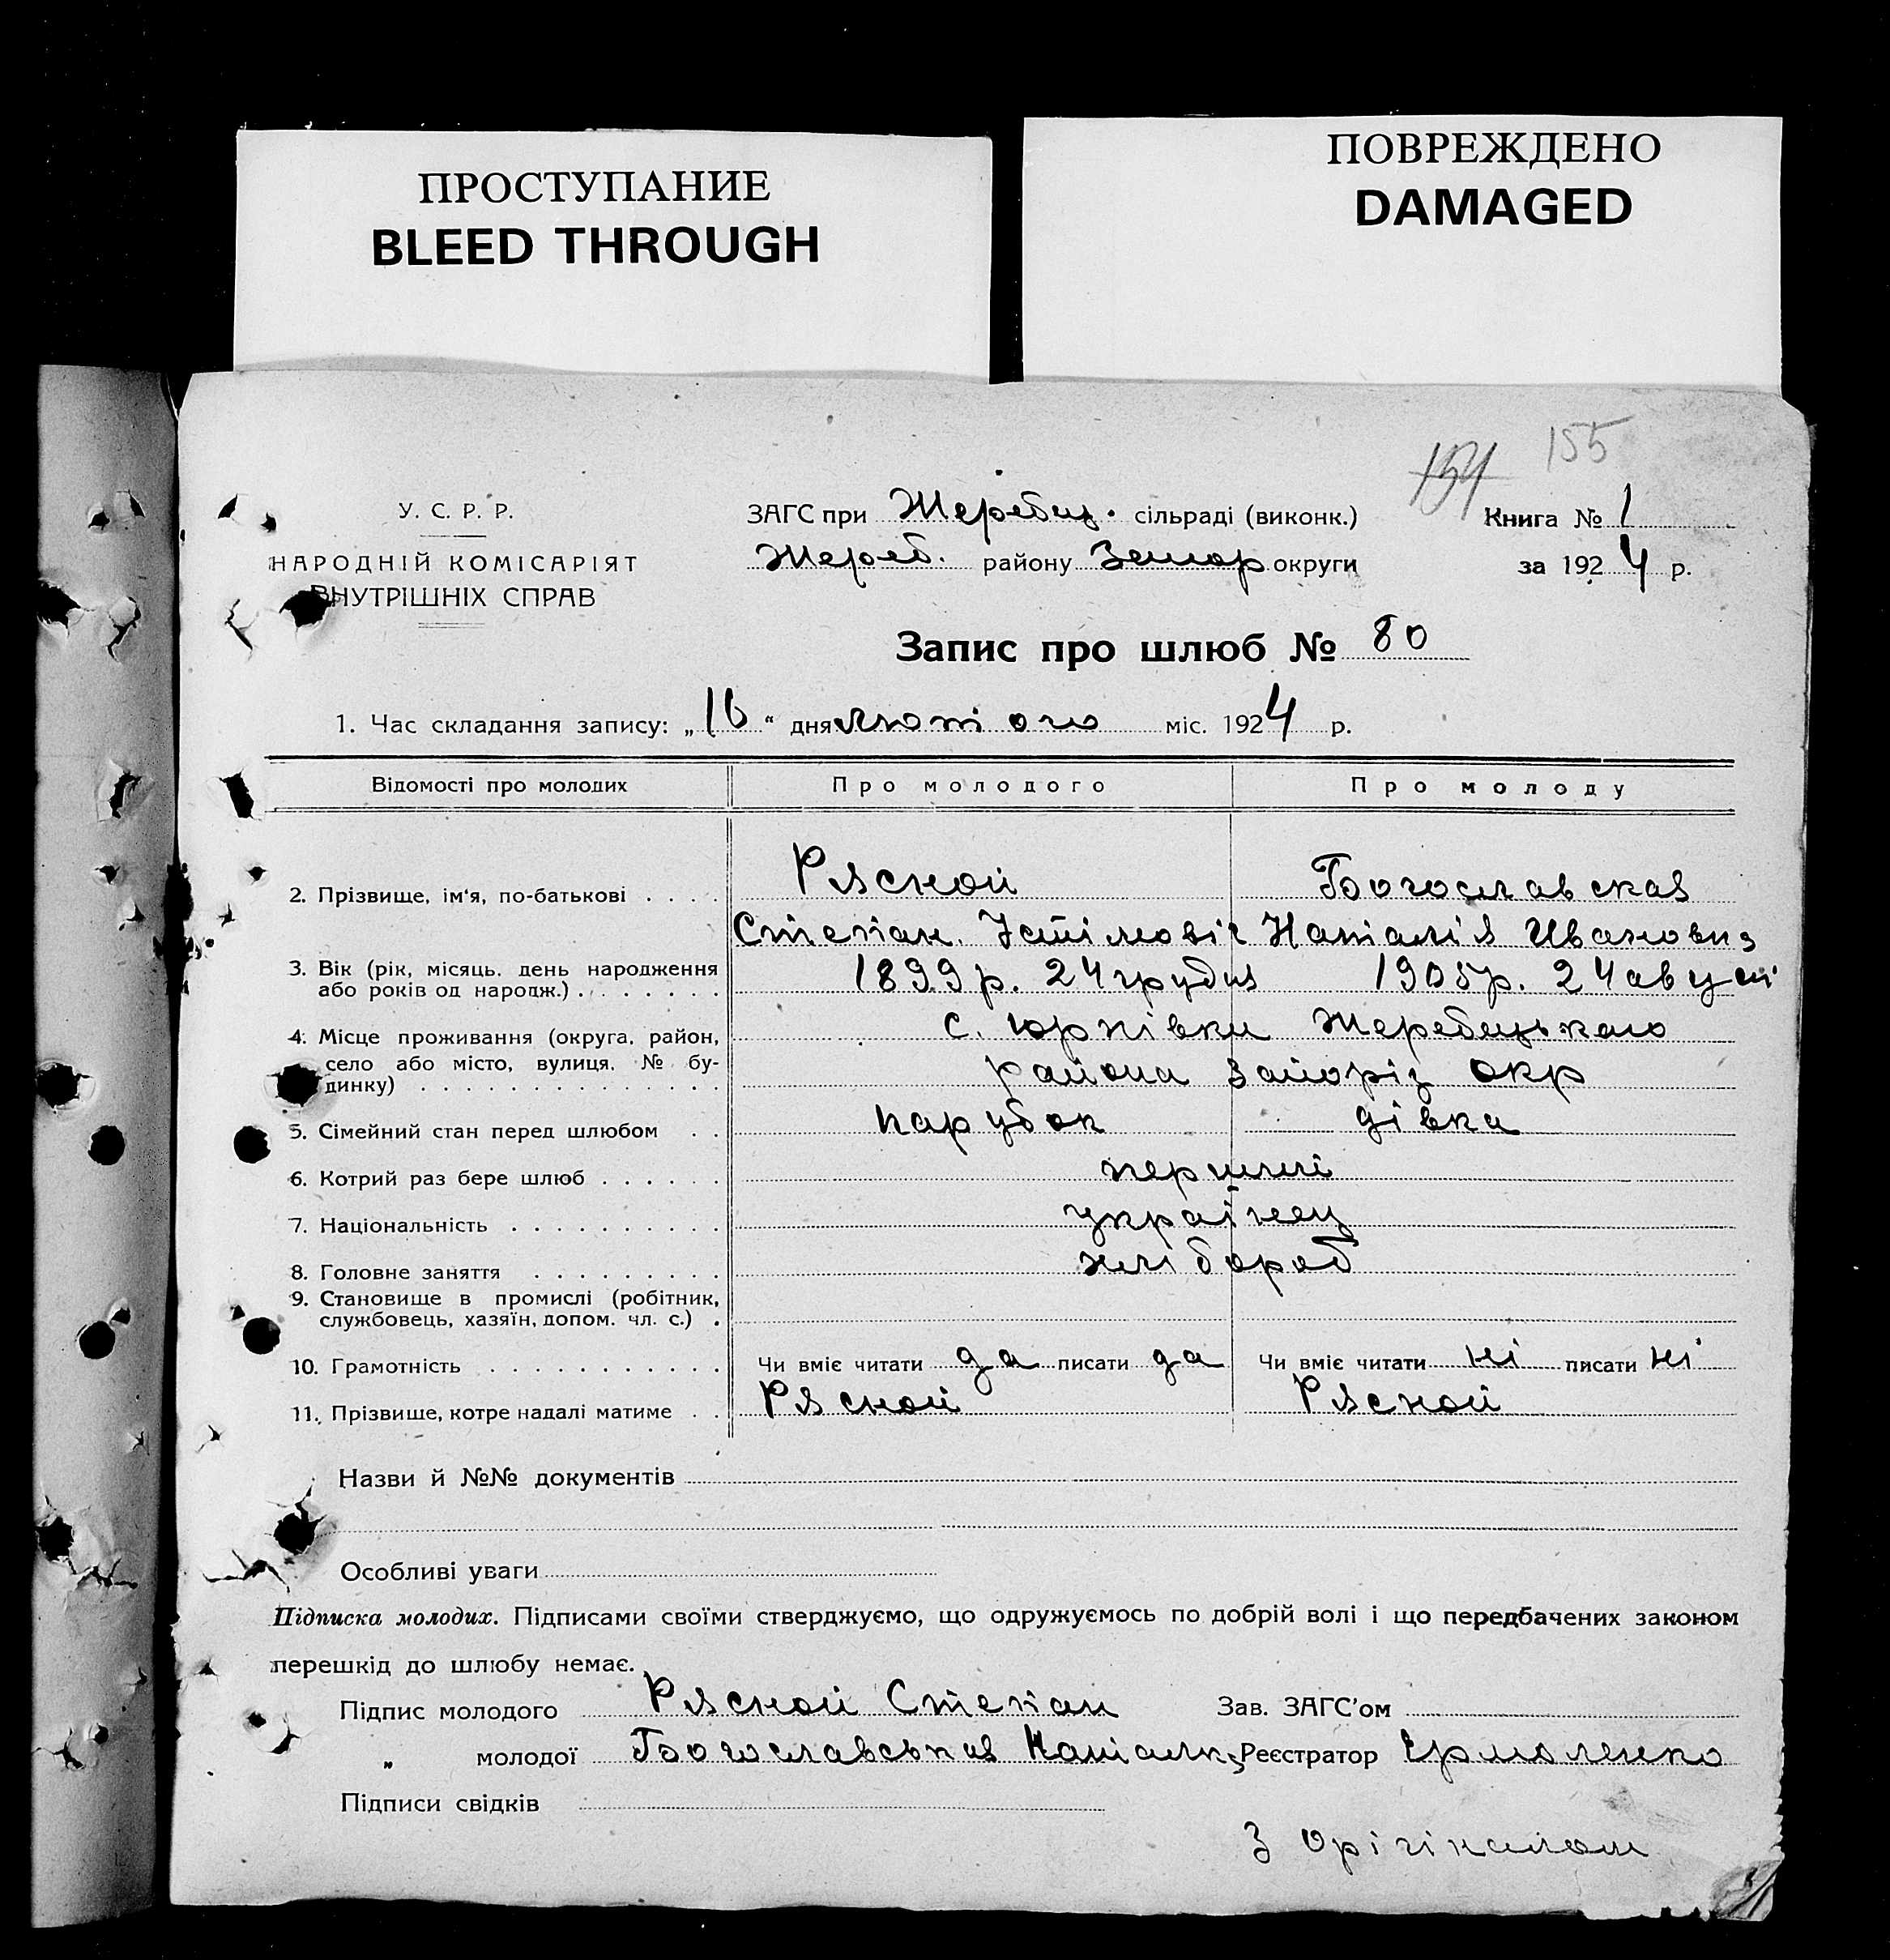 ПРОСТУПАНИЕ
BLEED THROUGH
ПОВРЕЖДЕНО
DAMAGED
154 155
У. С. Р. Р.
НАРОДНІЙ КОМІСАРІЯТ
ВНУТРІШНІХ СПРАВ
ЗАГС при Жеребец. сільраді (виконк.)
Жереб. району Запор округи
Книга № 1
за 1924 р.
Запис про шлюб № 80
1. Час складання запису: „16“ дня лютого міс. 1924 р.
Відомості про молодих Про молодого Про молоду
2. Прізвище, ім'я, по-батькові . . . . Рясной Богославская
Степан Наталія Ивановна
3. Вік (рік, місяць, день народження 1899 р. 24 грудня 1905 р. 24 август
або років од народж.) . . . . . . .
4. Місце проживання (округа, район, с. Юрківки Жеребецького
село або місто, вулиця, № бу- района Запоріз окр
динку) . . . . . . . . . . . . . .
5. Сімейний стан перед шлюбом . . парубок дівка
6. Котрий раз бере шлюб . . . . . . перший
7. Національність . . . . . . . . . . українец
8. Головне заняття . . . . . . . . . хлібороб
9. Становище в промислі (робітник,
службовець, хазяїн, допом. чл. с.) .
10. Грамотність . . . . . . . . . . . Чи вміє читати да писати да Чи вміє читати ні писати ні
11. Прізвище, котре надалі матиме . . Рясной Рясной
Назви й №№ документів
Особливі уваги
Підписка молодих. Підписами своїми стверджуємо, що одружуємось по добрій волі і що передбачених законом
перешкід до шлюбу немає.
Підпис молодого Рясной Степан Зав. ЗАГС'ом
„ молодої Богославськая Реєстратор Єрмоленко
Підписи свідків
З орігіналом